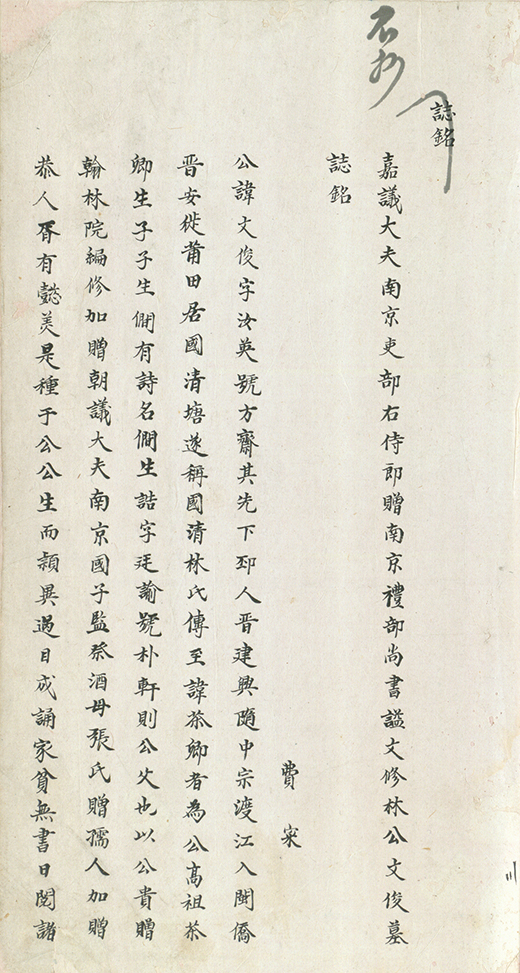 誌銘
不抄
嘉議大夫南京吏部右侍郎贈南京禮部尚書謚文修林公文俊墓
誌銘
費寀
公諱文俊字汝英號方齋其先下邳人晋建興隨中宗渡江入閩僑
晋安徙莆田居國清塘遂稱國清林氏傳至諱茶卿者為公高祖茶
卿生子子生僩有詩名僩生誥字廷諭號朴軒則公父也以公貴贈
翰林院編修加贈朝議大夫南京國子監祭酒母張氏贈孺人加贈
恭人胥有懿美是種于公公生而穎異過目成誦家貧無書日閱諸